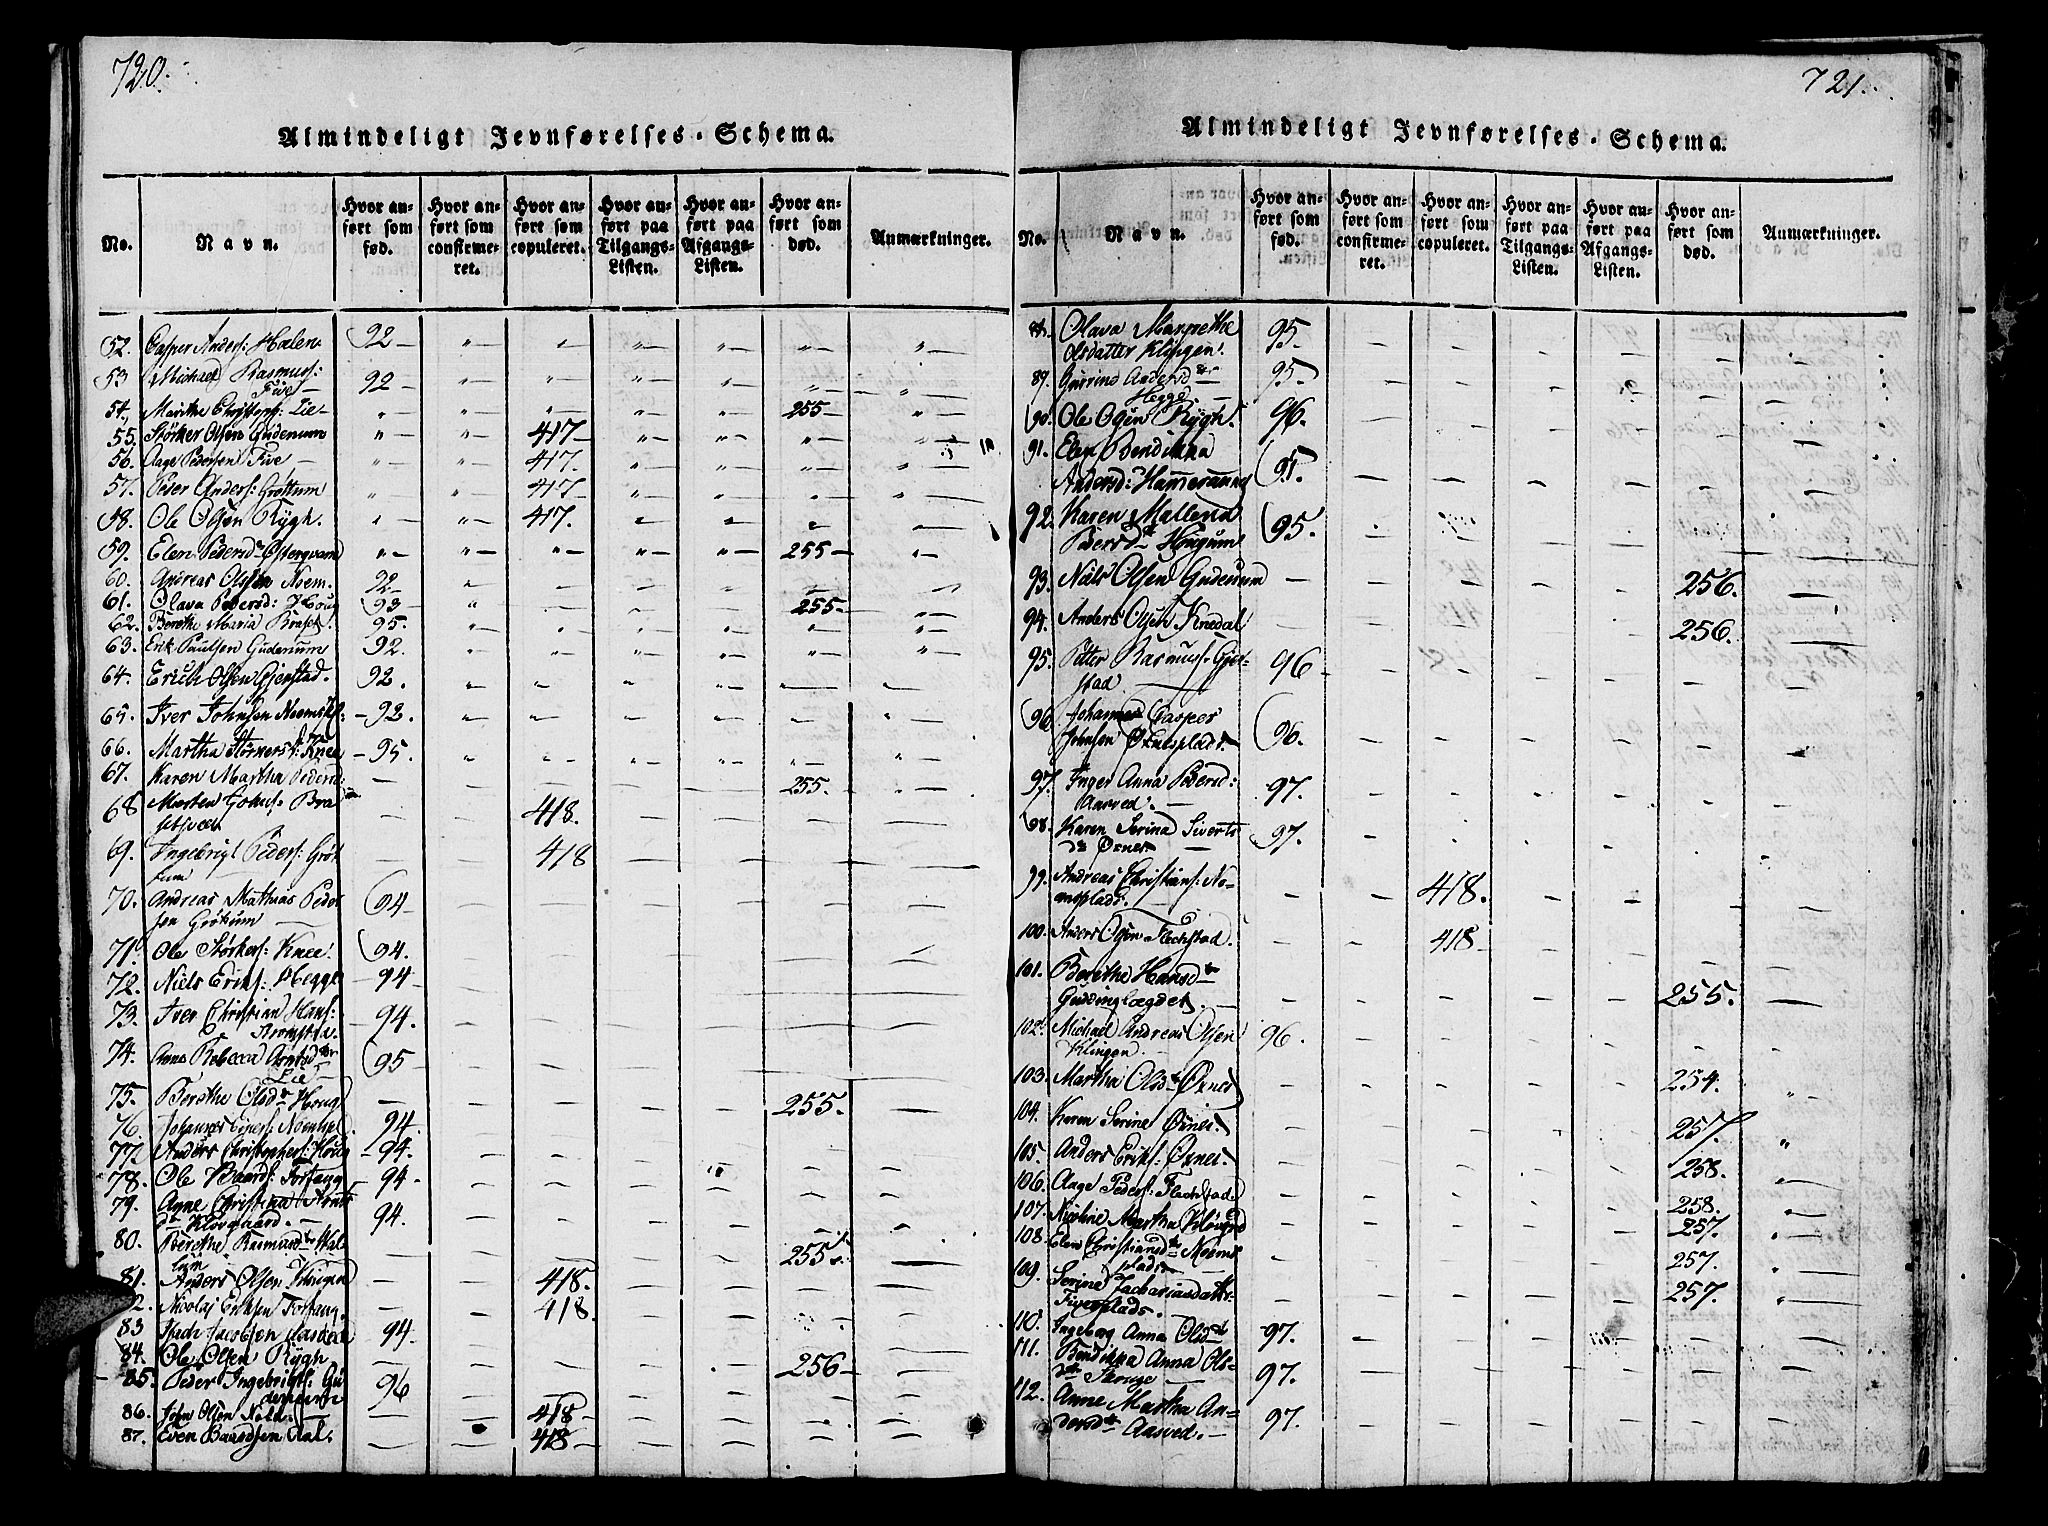 720.
Almindeligt Jevnførelses-Schema.
No.
Navn.
Hvor anført som fød.
Hvor anført som confirmeret.
Hvor anført som copuleret.
Hvor anført paa Tilgangs-Listen.
Hvor anført paa Afgangs-Listen.
Hvor anført som død.
Anmærkninger.
52. Casper Anders: Halen 92
53 Michael Rasmuss: Five 92
54. Marithe Christoph: Lie 255
55. Størker Olsen Gudenum 417
56. Aage Pedersen Five 417.
57. Peder Anders: Grøttum 417
58. Ole Olsen Rygh. 417.
59. Elen Pedersdr 255
60. Andreas Olsen Noem. 92
61. Olava Pedersd: Houg 93 255
62. Berethe Maria 95.
63. Erik Paulsen Gudenum 92.
64. Erich Olsen Gjenstad. 92.
65. Iver Johnsen 92.
66. Martha Knee 95.
67. Karen Martha Pedersd: 255.
68 Morten Johns: 418.
69. Ingebrigt Peders: Grøt
tum 418
70. Andreas Mathias Peder
sen Grøttum 94
71. Ole Størkers: Knee. 94.
72. Niels Eriks: Hegge 94
73. Iver Christian Hans: 94.
74. Anne Rebecca Lie 95
75. Berethe Olsdr Houg 255.
76. Johannes 94.
77. Anders Christophers: Houg 94.
78. Ole Baards: Forfang 94.
79. Anne Christina
dr Klovgaard. 94.
80. Berethe Rasmusdr 255
81. Anders Olsen Klingen 418.
Nicolaj Eriksen Forfang. 418.
83 Jacobsen Aasved 94.
84. Ole Olsen Rygh 256
85. Peder Ingebrigts: 96
86. John Olsen 418
87. Even Baardsen Aal. 418
721.
Almindeligt Jevnførelses-Schema.
No.
Navn.
Hvor anført som fød.
Hvor anført som confirmeret.
Hvor anført som copuleret.
Hvor anført paa Tilgangs-Listen.
Hvor anført paa Afgangs-Listen.
Hvor anført som død.
Anmærkninger.
Olava Margrethe
Olsdatter Klingen. 95.
89. Gurrine Andersdr
Hegge 95.
90. Ole Olsen Rygh. 96.
91. Elen Bendikka
Andersd: 95.
92. Karen Mallena
Pedersdr Hougum 95.
93. Niels Olsen Gudenum 256.
94. Anders Olsen Knedal 256.
95. Petter Rasmuss: Gjer-
stad 96
96. Johannes Casper
Johnsen Øxnesplads 96.
97. Inger Anna Pedersd:
Aasved. 97.
98. Karen Serina Siverts
dr Øxnes 97.
99. Andreas Christians: No-
emsplads. 418.
100. Anders Olsen Flechstad. 418
101. Berethe Hansdr
Guddinglægdet. 255.
102. Michael Andreas Olsen
Klingen 96.
103. Martha Olsdr Øxnes 254.
104. Karen Serine Øxnes. 257.
105. Anders Eriks: Øxnes. 258.
106. Aage Peders: Flechstad 258.
107. Nicoline Martha 257.
108. Elen Christiansdr Noems
plads 257.
109. Serine Zachariasdattr
Fivesplads. 257.
110. Ingeborg Anna Olsdr 97.
111. Bendikka Anna Ols-
dr 97.
112. Anne Martha An-
dersdr Aasved. 97.